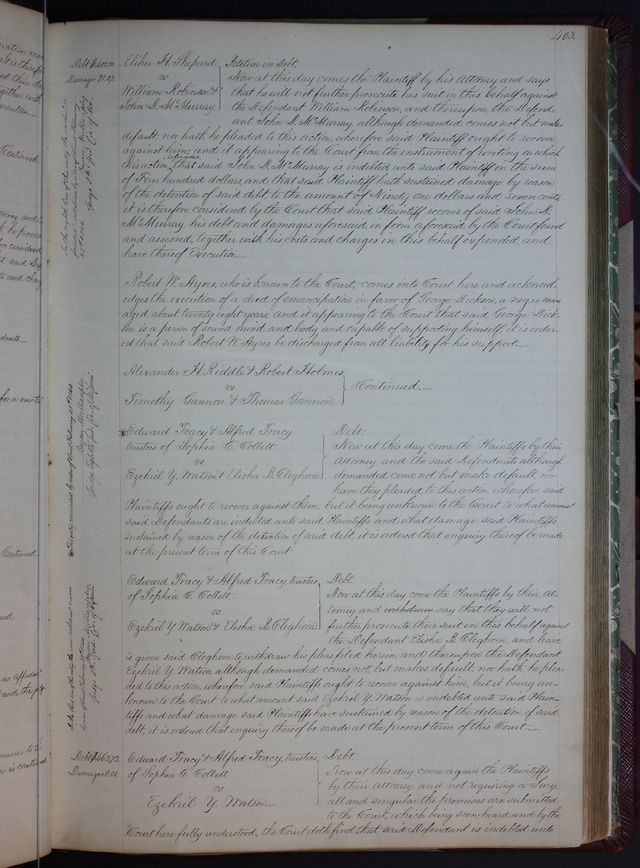 403.
Debt $400.00
Damages 91.07.
Elihu H. Shepard
vs
William Robinson &
John D. McMurray
Petition in Debt.
Now at this day comes the Plaintiff by his Attorney and says
that he will not further prosecute his suit in this behalf against
the Defendant William Robinson, and thereupon the Defend-
ant John D. McMurray, although demanded comes not but makes
default, nor hath he pleaded to this action, wherefore said Plaintiff ought to recover
against him; and it appearing to the Court from the instrument of writing on which
this action is founded that said John D. McMurray is indebted unto said Plaintiff in the sum
of Four hundred dollars, and that said Plaintiff hath sustained damage by reason
of the detention of said debt to the amount of Ninety one dollars and seven cents,
it is therefore considered by the Court that said Plaintiff recover of said John D.
McMurray, his debt and damages aforesaid in form aforesaid by the Court found
and assessed, together with his costs and charges in this behalf expended, and
have thereof Execution.
Robert W. Ayres, who is known to the Court, comes into Court here and acknowl-
edges the execution of a deed of emancipation in favor of George Dickson, a negro man
aged about twenty eight years, and it appearing to the Court that said George Dick-
son is a person of sound mind and body and capable of supporting himself, it is order-
ed that said Robert W. Ayres be discharged from all liability for his support.
Alexander H. Riddle & Robert Holmes
vs
Timothy Gannon & Thomas Gannon
Continued
Edward Tracy & Alfred Tracy
trustees of Sophia C. Collett
vs
Ezekiel Y. Watson & Elisha B. Cleghorn
Debt.
Now at this day come the Plaintiffs by their
Attorney and the said Defendants although
demanded come not but make default, nor
have they pleaded to this action, wherefore said
Plaintiffs ought to recover against them, but it being unknown to the Court to what amount
said Defendants are indebted unto said Plaintiffs and what damage said Plaintiffs
sustained by reason of the detention of said debt, it is ordered that enquiry thereof be made
at the present term of this Court
Edward Tracy & Alfred Tracy, trustees
of Sophia C. Collett
vs
Ezekiel Y. Watson & Elisha B. Cleghorn
Debt
Now at this day come the Plaintiffs by their At-
torney and withdraw say that they will not
further prosecute their suit in this behalf against
the Defendant Elisha B. Cleghorn, and leave
is given said Cleghorn to withdraw his pleas filed herein, and thereupon the Defendant
Ezekiel Y. Watson although demanded comes not but makes default, nor hath he plea-
ded to this action, wherefore said Plaintiffs ought to recover against him, but it being un-
known to the Court to what amount said Ezekiel Y. Watson is indebted unto said Plain-
tiffs and what damage said Plaintiffs have sustained by reason of the detention of said
debt, it is ordered that enquiry thereof be made at the present term of this Court.
Debt $463.72
Damages 0.01
Edward Tracy & Alfred Tracy, trustees,
of Sophia C. Collett
vs
Ezekiel Y. Watson
Debt
Now at this day come again the Plaintiffs
by their Attorney and not requiring a Jury,
all and singular the premises are submitted
to the Court, which being seen, heard and by the
Court here fully understood, the Court doth find that said Defendant is indebted unto